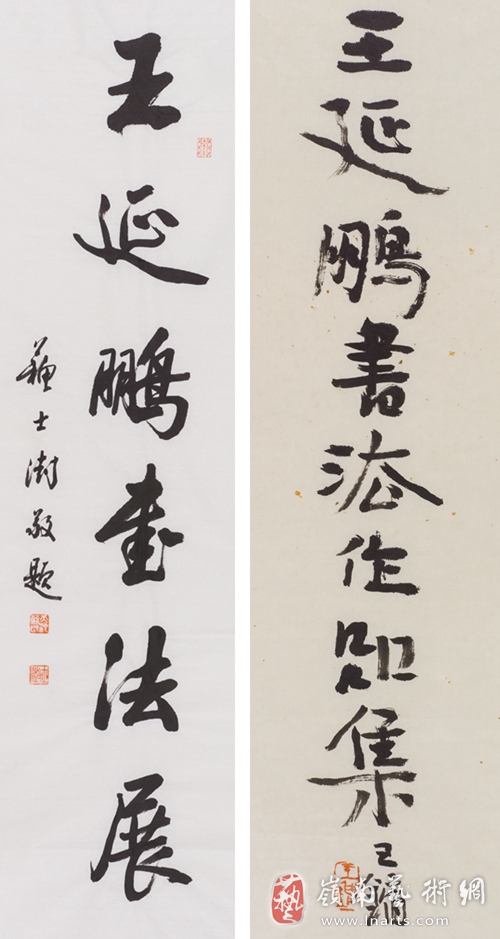 王延鵬書法展
蘇士澍敬題
王延鵬書法作品集
王鏞
藝
嶺南藝術網
www.lnarts.com